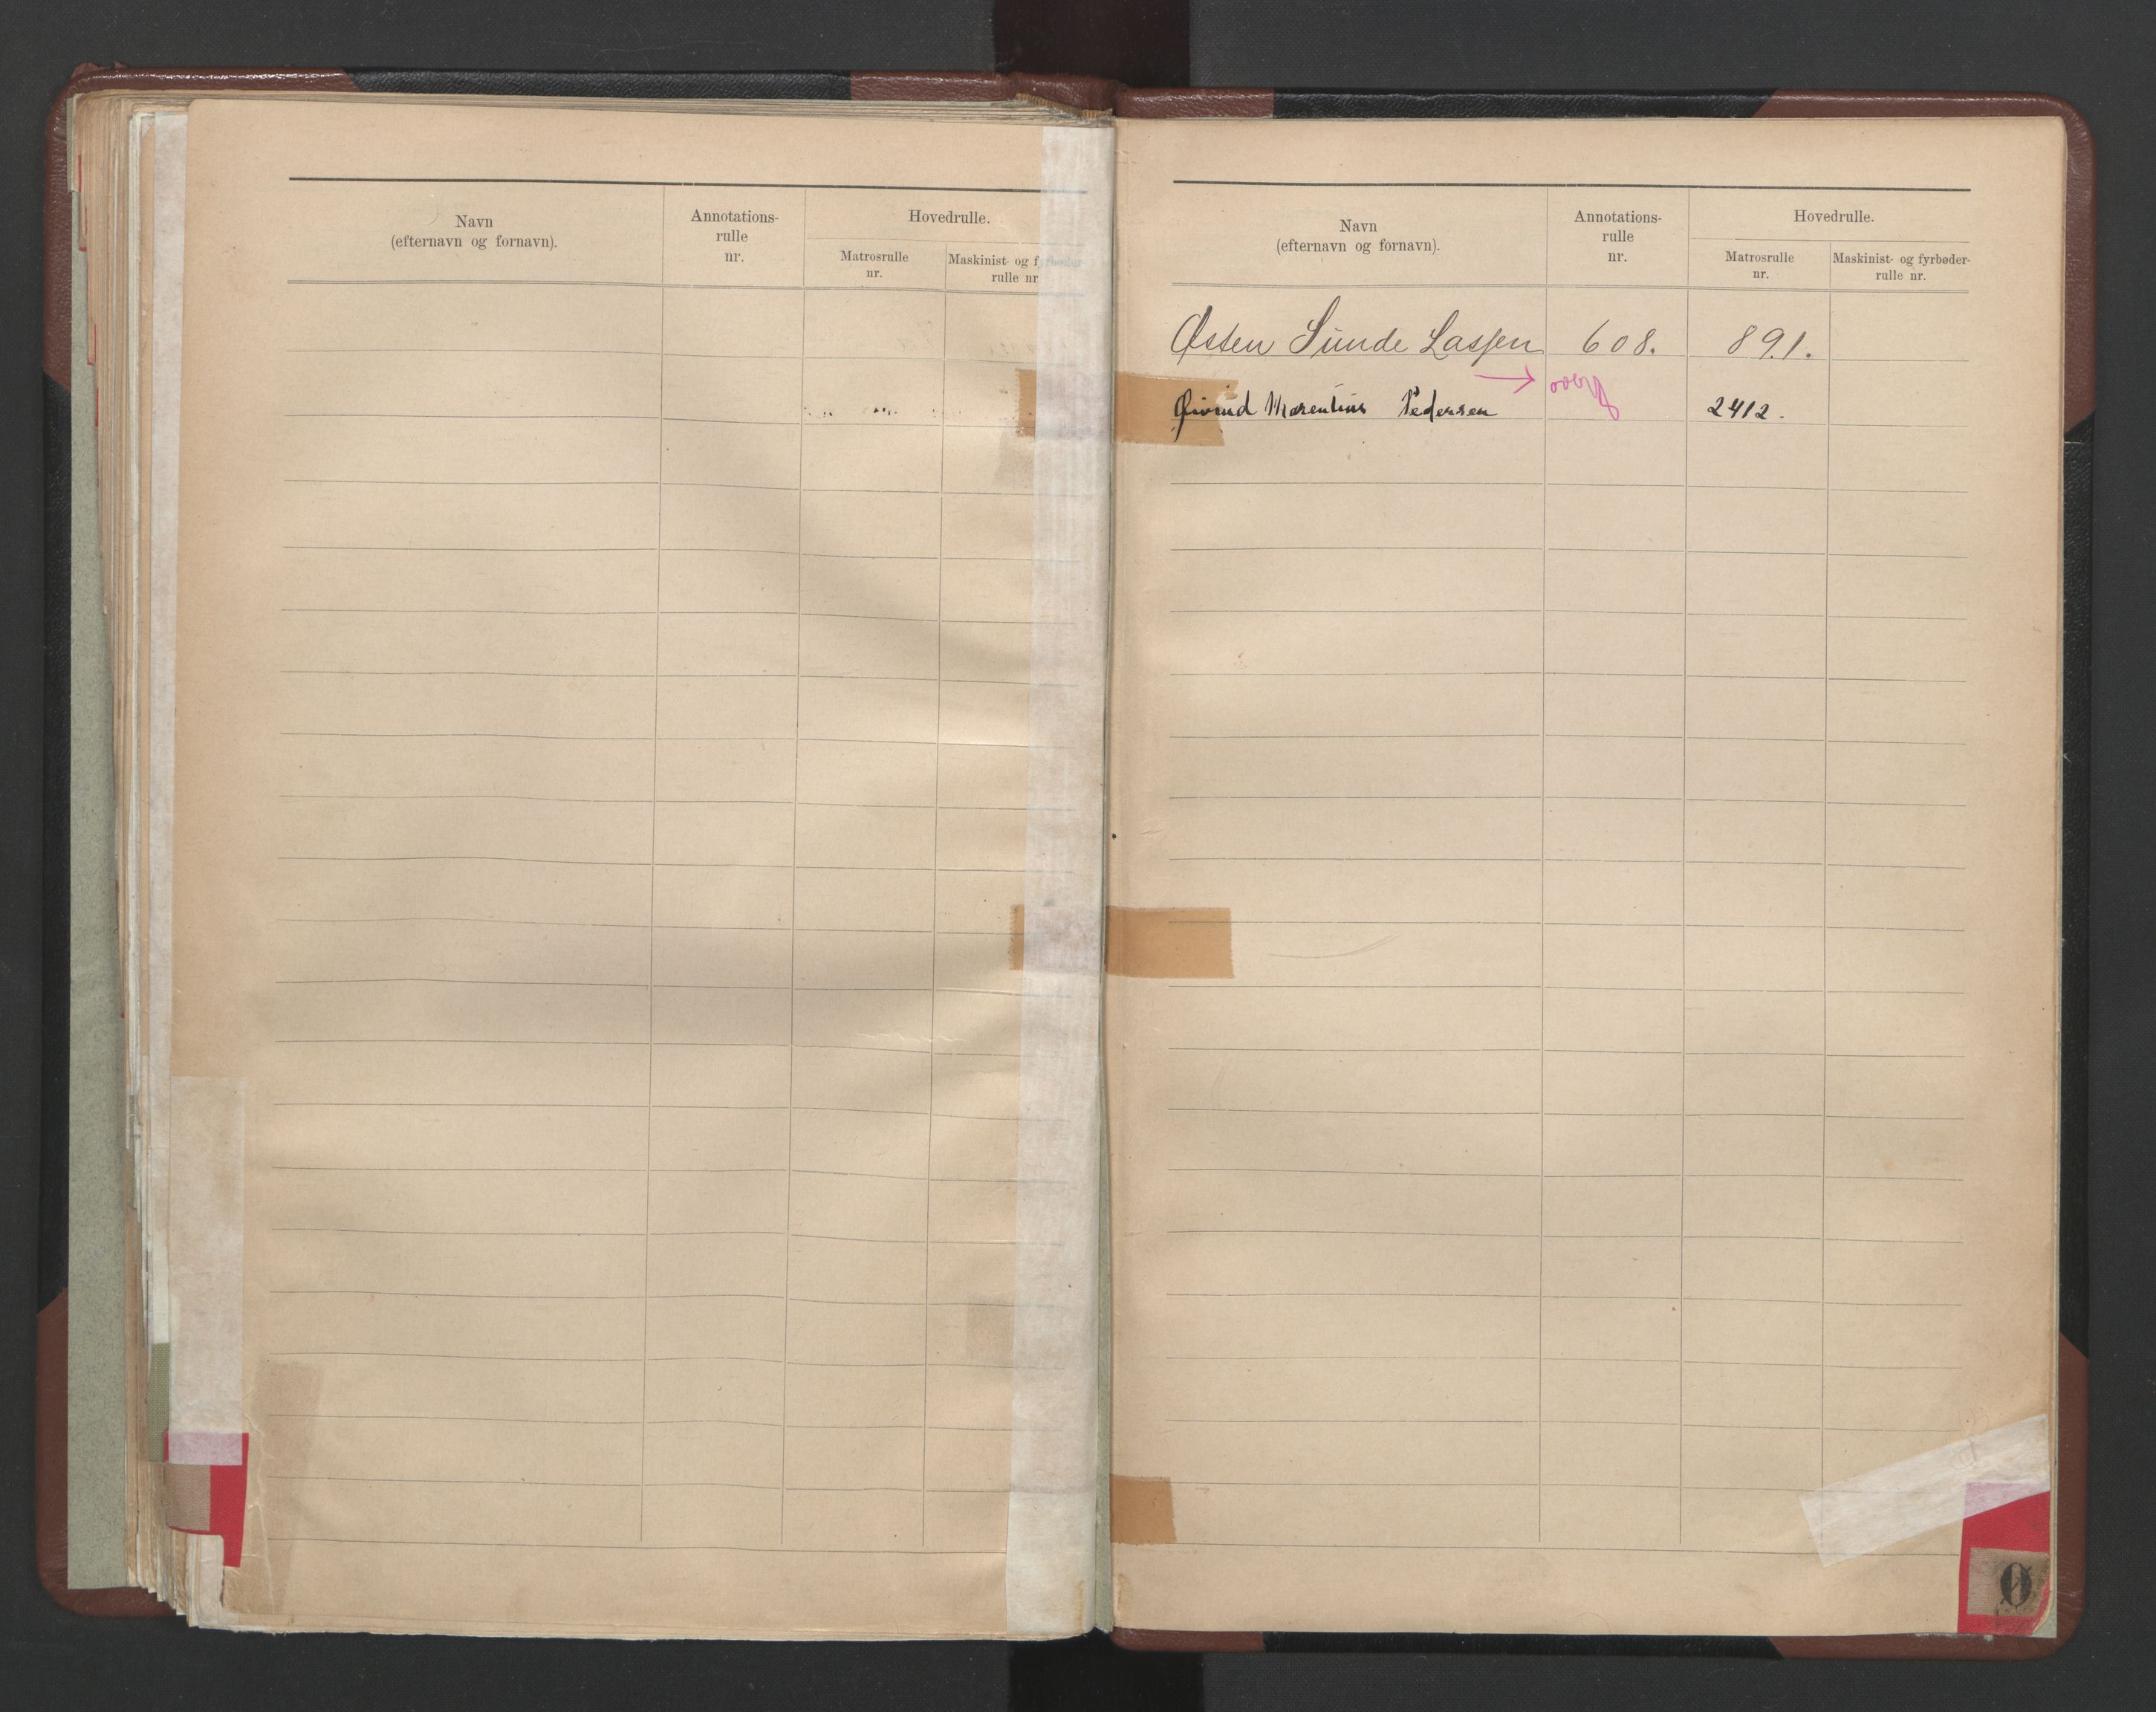 Navn
(efternavn og fornavn).
Annotations-
rulle
nr.
Hovedrulle.
Matrosrulle
nr.
Maskinist- og fyrbøder-
rulle nr.
Navn
(efternavn og fornavn).
Annotations-
rulle
nr.
Hovedrulle.
Matrosrulle
nr.
Maskinist- og fyrbøder-
rulle nr.
Østen Sunde Lassen 608. 891.
Øivind Marentius Pedersen → 2412.
Ø